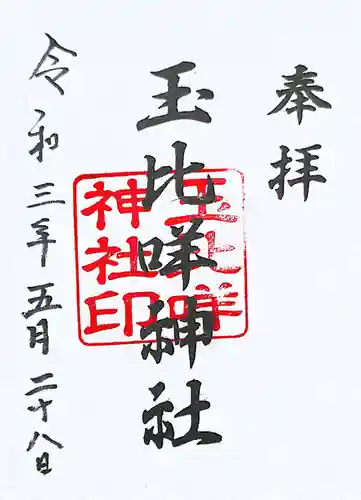 奉拝
玉比咩神社
玉比咩
神社印
令和三年五月二十八日